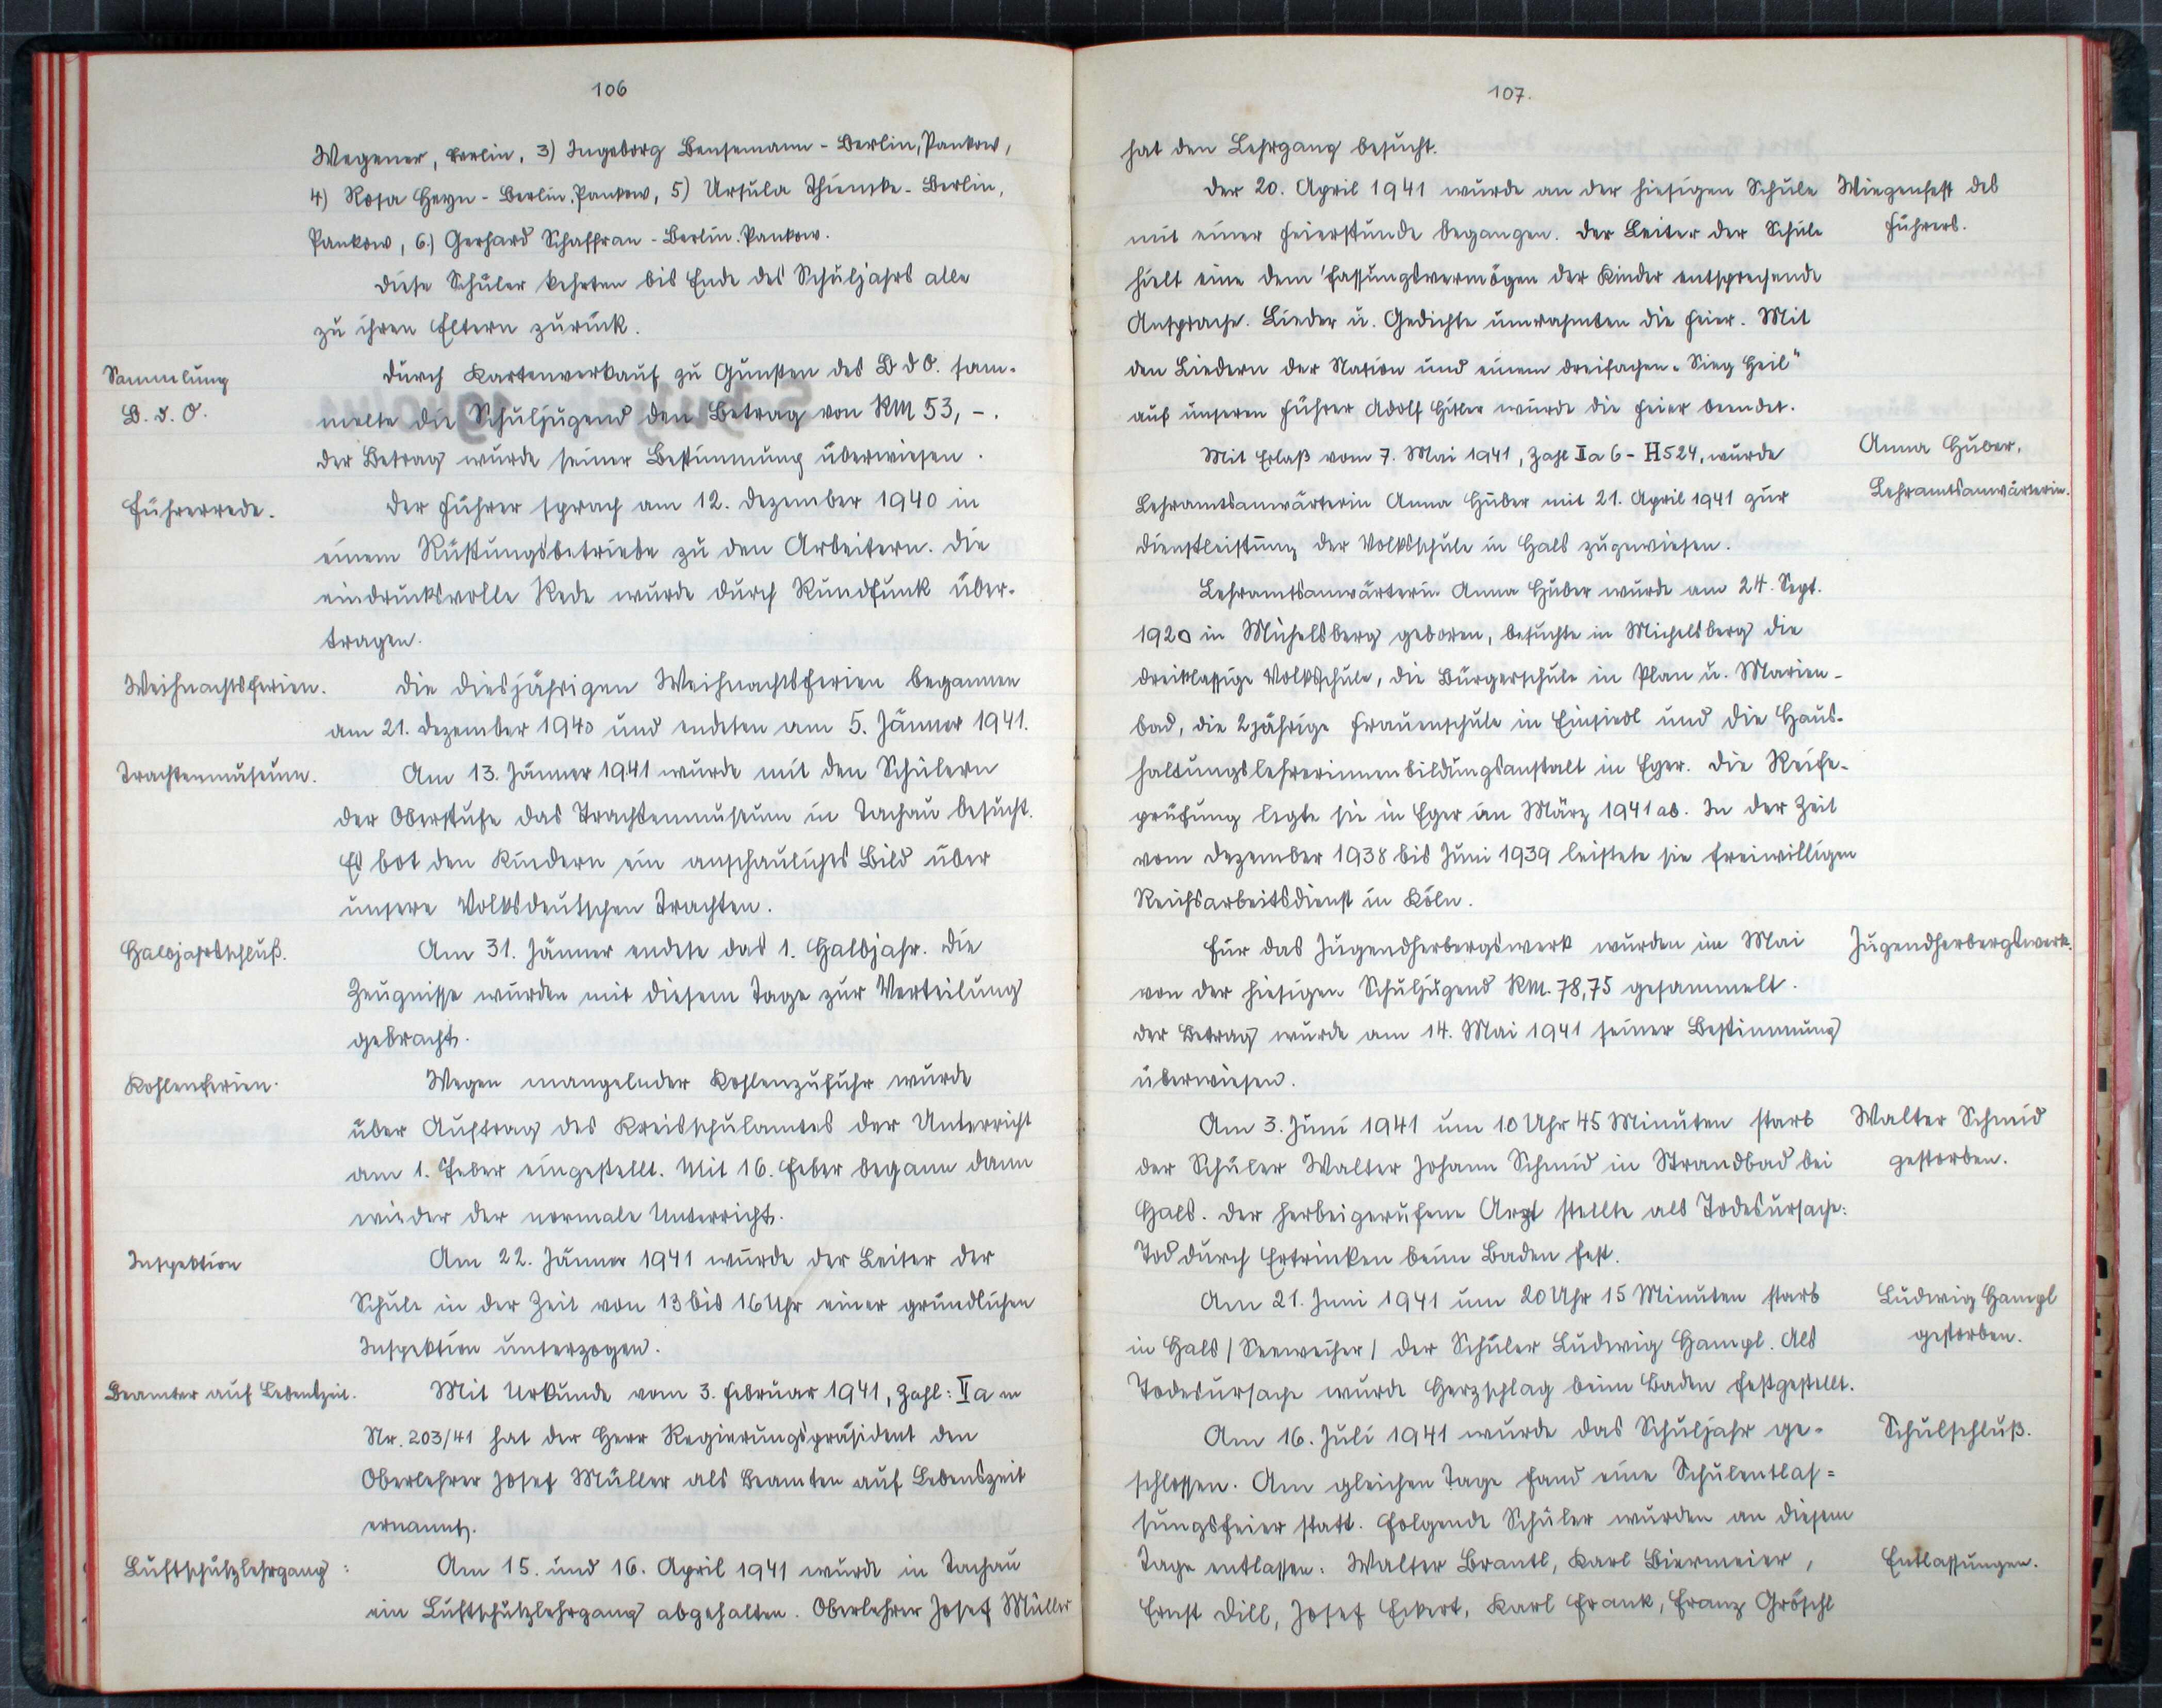 106
Wegener, Berlin, 3) Ingeborg Bensemann - Berlin, Pankow,
4) Rosa Heyn - Berlin, Pankow, 5) Ursula Thiemke - Berlin,
Pankow, 6.) Gerhard Schaffran - Berlin. Pankow.
Diese Schüler kehrten bis Ende des Schuljahrs alle
zu ihren Eltern zurück.
Sammlung
B. d. O.
Durch Kartenverkauf zu Gunsten des B d O. sam-
melte die Schuljugend den Betrag von RM 53,-.
Der Betrag wurde seiner Bestimmung überwiesen.
Führerrede.
Der Führer sprach am 12. Dezember 1940 in
einem Rüstungsbetriebe zu den Arbeitern. Die
eindrucksvolle Rede wurde durch Rundfunk über-
tragen.
Weihnachtsferien.
Die diesjährigen Weihnachtsferien begannen
am 21. Dezember 1940 und endeten am 5. Jänner 1941.
Trachtenmuseum.
Am 13. Jänner 1941 wurde mit den Schülern
der Oberstufe das Trachtenmuseum in Tachau besucht.
Es bot den Kindern ein anschauliches Bild über
unsere Volksdeutschen Trachten.
Halbjahrsschluß.
Am 31. Jänner endete das 1. Halbjahr. Die
Zeugnisse wurden mit diesem Tage zur Verteilung
gebracht.
Kohlenferien.
Wegen mangelnder Kohlenzufuhr wurde
über Auftrag des Kreisschulamtes der Unterricht
am 1. Feber eingestellt. Mit 16. Feber begann dann
wieder der normale Unterricht.
Inspektion
Am 22. Jänner 1941 wurde der Leiter der
Schule in der Zeit von 13 bis 16 Uhr einer gründlichen
Inspektion unterzogen.
Beamter auf Lebenszeit.
Mit Urkunde vom 3. Februar 1941, Zahl: I a m
Nr. 203/41 hat der Herr Regierungspräsident den
Oberlehrer Josef Müller als Beamten auf Lebenszeit
ernannt.
Luftschutzlehrgang :
Am 15. und 16. April 1941 wurde in Tachau
ein Luftschutzlehrgang abgehalten. Oberlehrer Josef Müller
107.
hat den Lehrgang besucht.
Der 20. April 1941 wurde an der hiesigen Schule
Wiegenfest des
Führers.
mit einer Feierstunde begangen. Der Leiter der Schule
hielt eine dem Fassungsvermögen der Kinder entsprechende
Ansprache. Lieder u. Gedichte umrahmten die Feier. Mit
den Liedern der Nation und einem dreifachen „Sieg Heil"
auf unseren Führer Adolf Hitler wurde die Feier beendet.
Mit Erlaß vom 7. Mai 1941, Zahl II a 6 - H 524, wurde
Anna Huber,
Lehramtsanwärterin.
Lehramtsanwärterin Anna Huber mit 21. April 1941 zur
Dienstleistung der Volksschule in Hals zugewiesen.
Lehramtsanwärterin Anna Huber wurde am 24. Sept.
1920 in Michelsberg geboren, besuchte in Michelsberg die
dreiklassige Volksschule, die Bürgerschule in Plan u. Marien-
bad, die 2jährige Frauenschule in Einsiedl und die Haus-
haltungslehrerinnenbildungsanstalt in Eger. Die Reife-
prüfung legte sie in Eger im März 1941 ab. In der Zeit
vom Dezember 1938 bis Juni 1939 leistete sie freiwilligen
Reichsarbeitsdienst in Köln.
Für das Jugendherbergswerk wurden im Mai
Jugendherbergswerk.
von der hiesigen Schuljugend RM. 78,75 gesammelt.
Der Betrag wurde am 14. Mai 1941 seiner Bestimmung
überwiesen.
Am 3. Juni 1941 um 10 Uhr 45 Minuten starb
Walter Schmid
gestorben.
der Schüler Walter Johann Schmid in Strandbad bei
Hals. Der herbeigerufene Arzt stellte als Todesursache:
Tod durch Ertrinken beim Baden fest.
Am 21. Juni 1941 um 20 Uhr 15 Minuten starb
Ludwig Hampl
gestorben.
in Hals / Seeweiher / der Schüler Ludwig Hampl. Als
Todesursache wurde Herzschlag beim Baden festgestellt.
Am 16. Juli 1941 wurde das Schuljahr ge-
Schulschluß.
schlossen. Am gleichen Tage fand eine Schulentlas=
sungsfeier statt. Folgende Schüler wurden an diesem
Tage entlassen: Walter Brantl, Karl Biermeier,
Entlassungen.
Ernst Dill, Josef Eckert, Karl Frank, Franz Gröschl